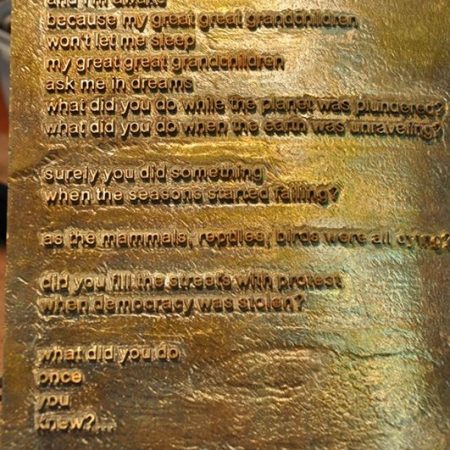 and i'm awake
because my great great grandchildren
won't let me sleep
my great great grandchildren
ask me in dreams
what did you do while the planet was plundered?
what did you do when the earth was unraveling?
surely you did something
when the seasons started failing?
as the mammals, reptiles, birds were all dying?
did you fill the streets with protest
when democracy was stolen?
what did you do
once
you
knew?...